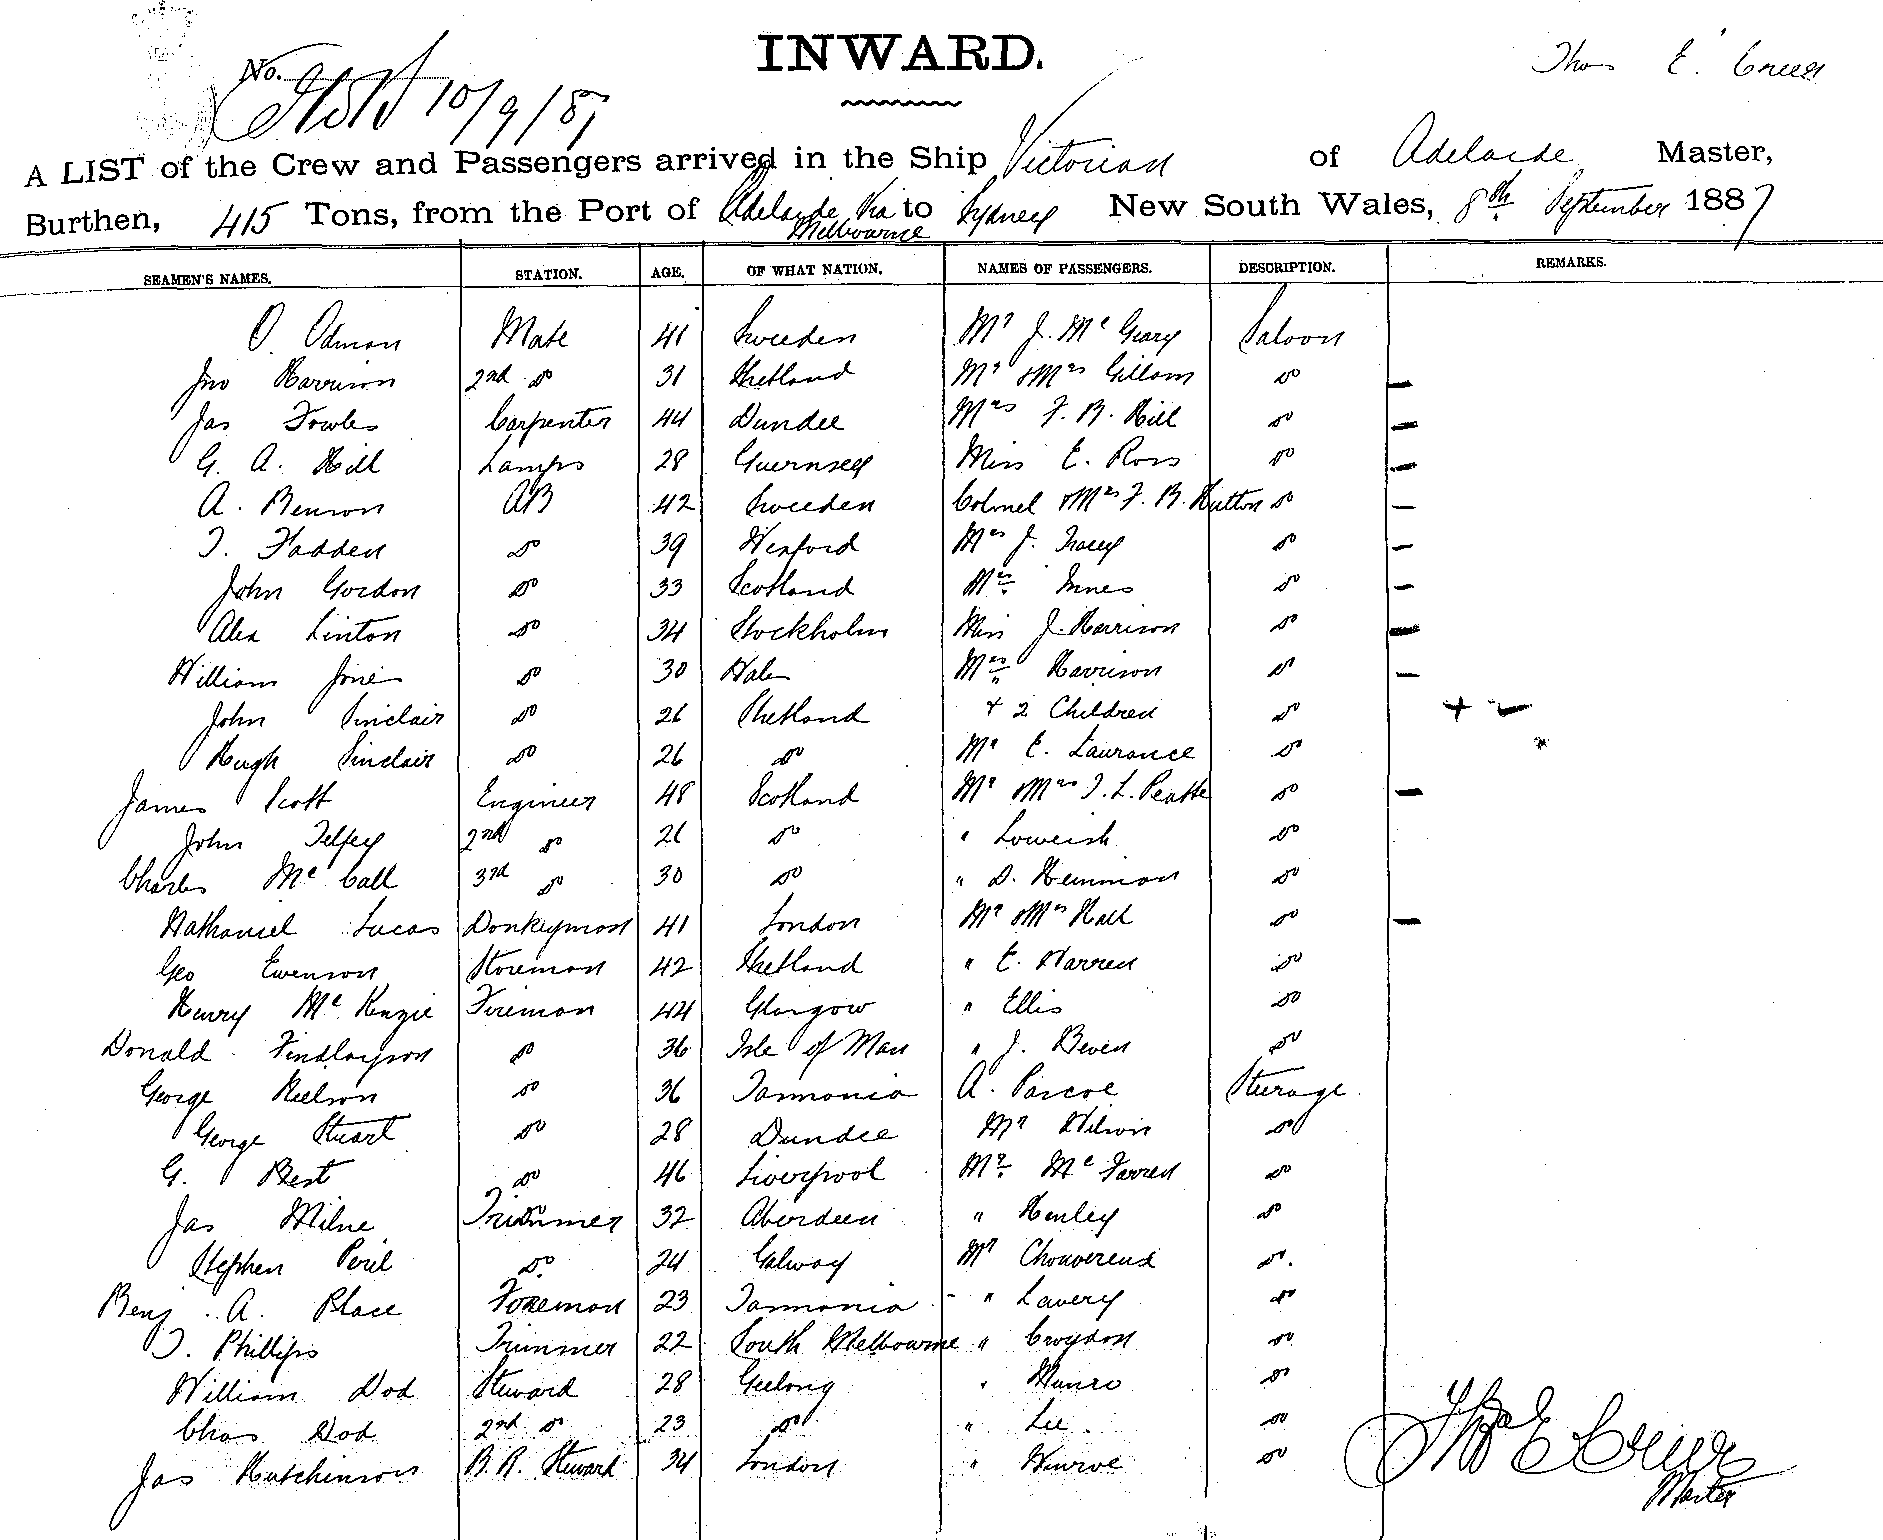 INWARD.
No.
10/9/87
Thos E. Creer
A LIST of the Crew and Passengers arrived in the Ship Victorian of Adelaide Master,
Burthen, 415 Tons, from the Port of Adelaide Via Melbourne to Sydney New South Wales, 8th September 1887
SEAMEN'S NAMES. STATION. AGE. OF WHAT NATION. NAMES OF PASSENGERS. DESCRIPTION. REMARKS.
O. Odman Mate 41 Sweden Mr J. Mc Geary Saloon
Jno Harrison 2nd do 31 Shetland Mr & Mrs Gillam do
Jas Fowles Carpenter 44 Dundee Mrs F. B. Hill do
G. A. Hill Lamps 28 Guernsey Miss E. Ross do
A. Benson AB 42 Sweeden Colonel & Mrs F. B. Hutton do
T. Hadden do 39 Wexford Mrs J. Tracey do
John Gordon do 33 Scotland Mrs Innes do
Alex Linton do 34 Stockholm Miss J. Harrison do
William Jones do 30 Wales Mrs Harrison do
John Sinclair do 26 Shetland + 2 Children do
Hugh Sinclair do 26 do Mr E. Laurance do
James Scott Engineer 48 Scotland Mr & Mrs T. L. do
John Telfey 2nd do 26 do " Loweish do
Charles Mc Call 3rd do 30 do " D. Hemmon do
Nathaniel Lucas Donkeyman 41 London Mr & Mrs Hall do
Geo Evenson Storeman 42 Shetland " E. Warren do
Henry Mc Kenzie Fireman 44 Glasgow " Ellis do
Donald Findlayson do 36 Isle of Man " J. Beven do
George Neelson do 36 Tasmania A. Pascoe Steerage
George Stuart do 28 Dundee Mr Wilson do
G. Best do 46 Liverpool Mr Mc Farren do
Jas Milne Trimmer 32 Aberdeen " Henley do
Stephen Peril do 24 Galway Mr do
Benj. A. Place Foreman 23 Tasmania " Lavery do
T. Phillips Trimmer 22 South Melbourne " Croydon do
William Dod Steward 28 Geelong " Munro do
Chas Dod 2nd do 23 do " Lee do
Jas Hutchinson B. R. Steward 34 London " do
Thos E Creer
Master